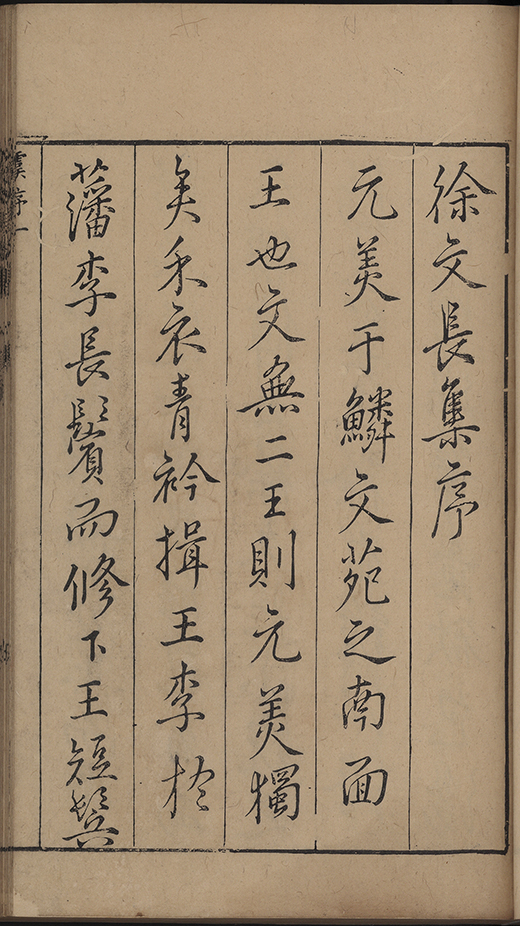 徐文長集序
元美于鱗文苑之南面
王也文無二王則元美獨
矣余衣青衿揖王李於
藩李長鬢而修下王短鬂
虞序一